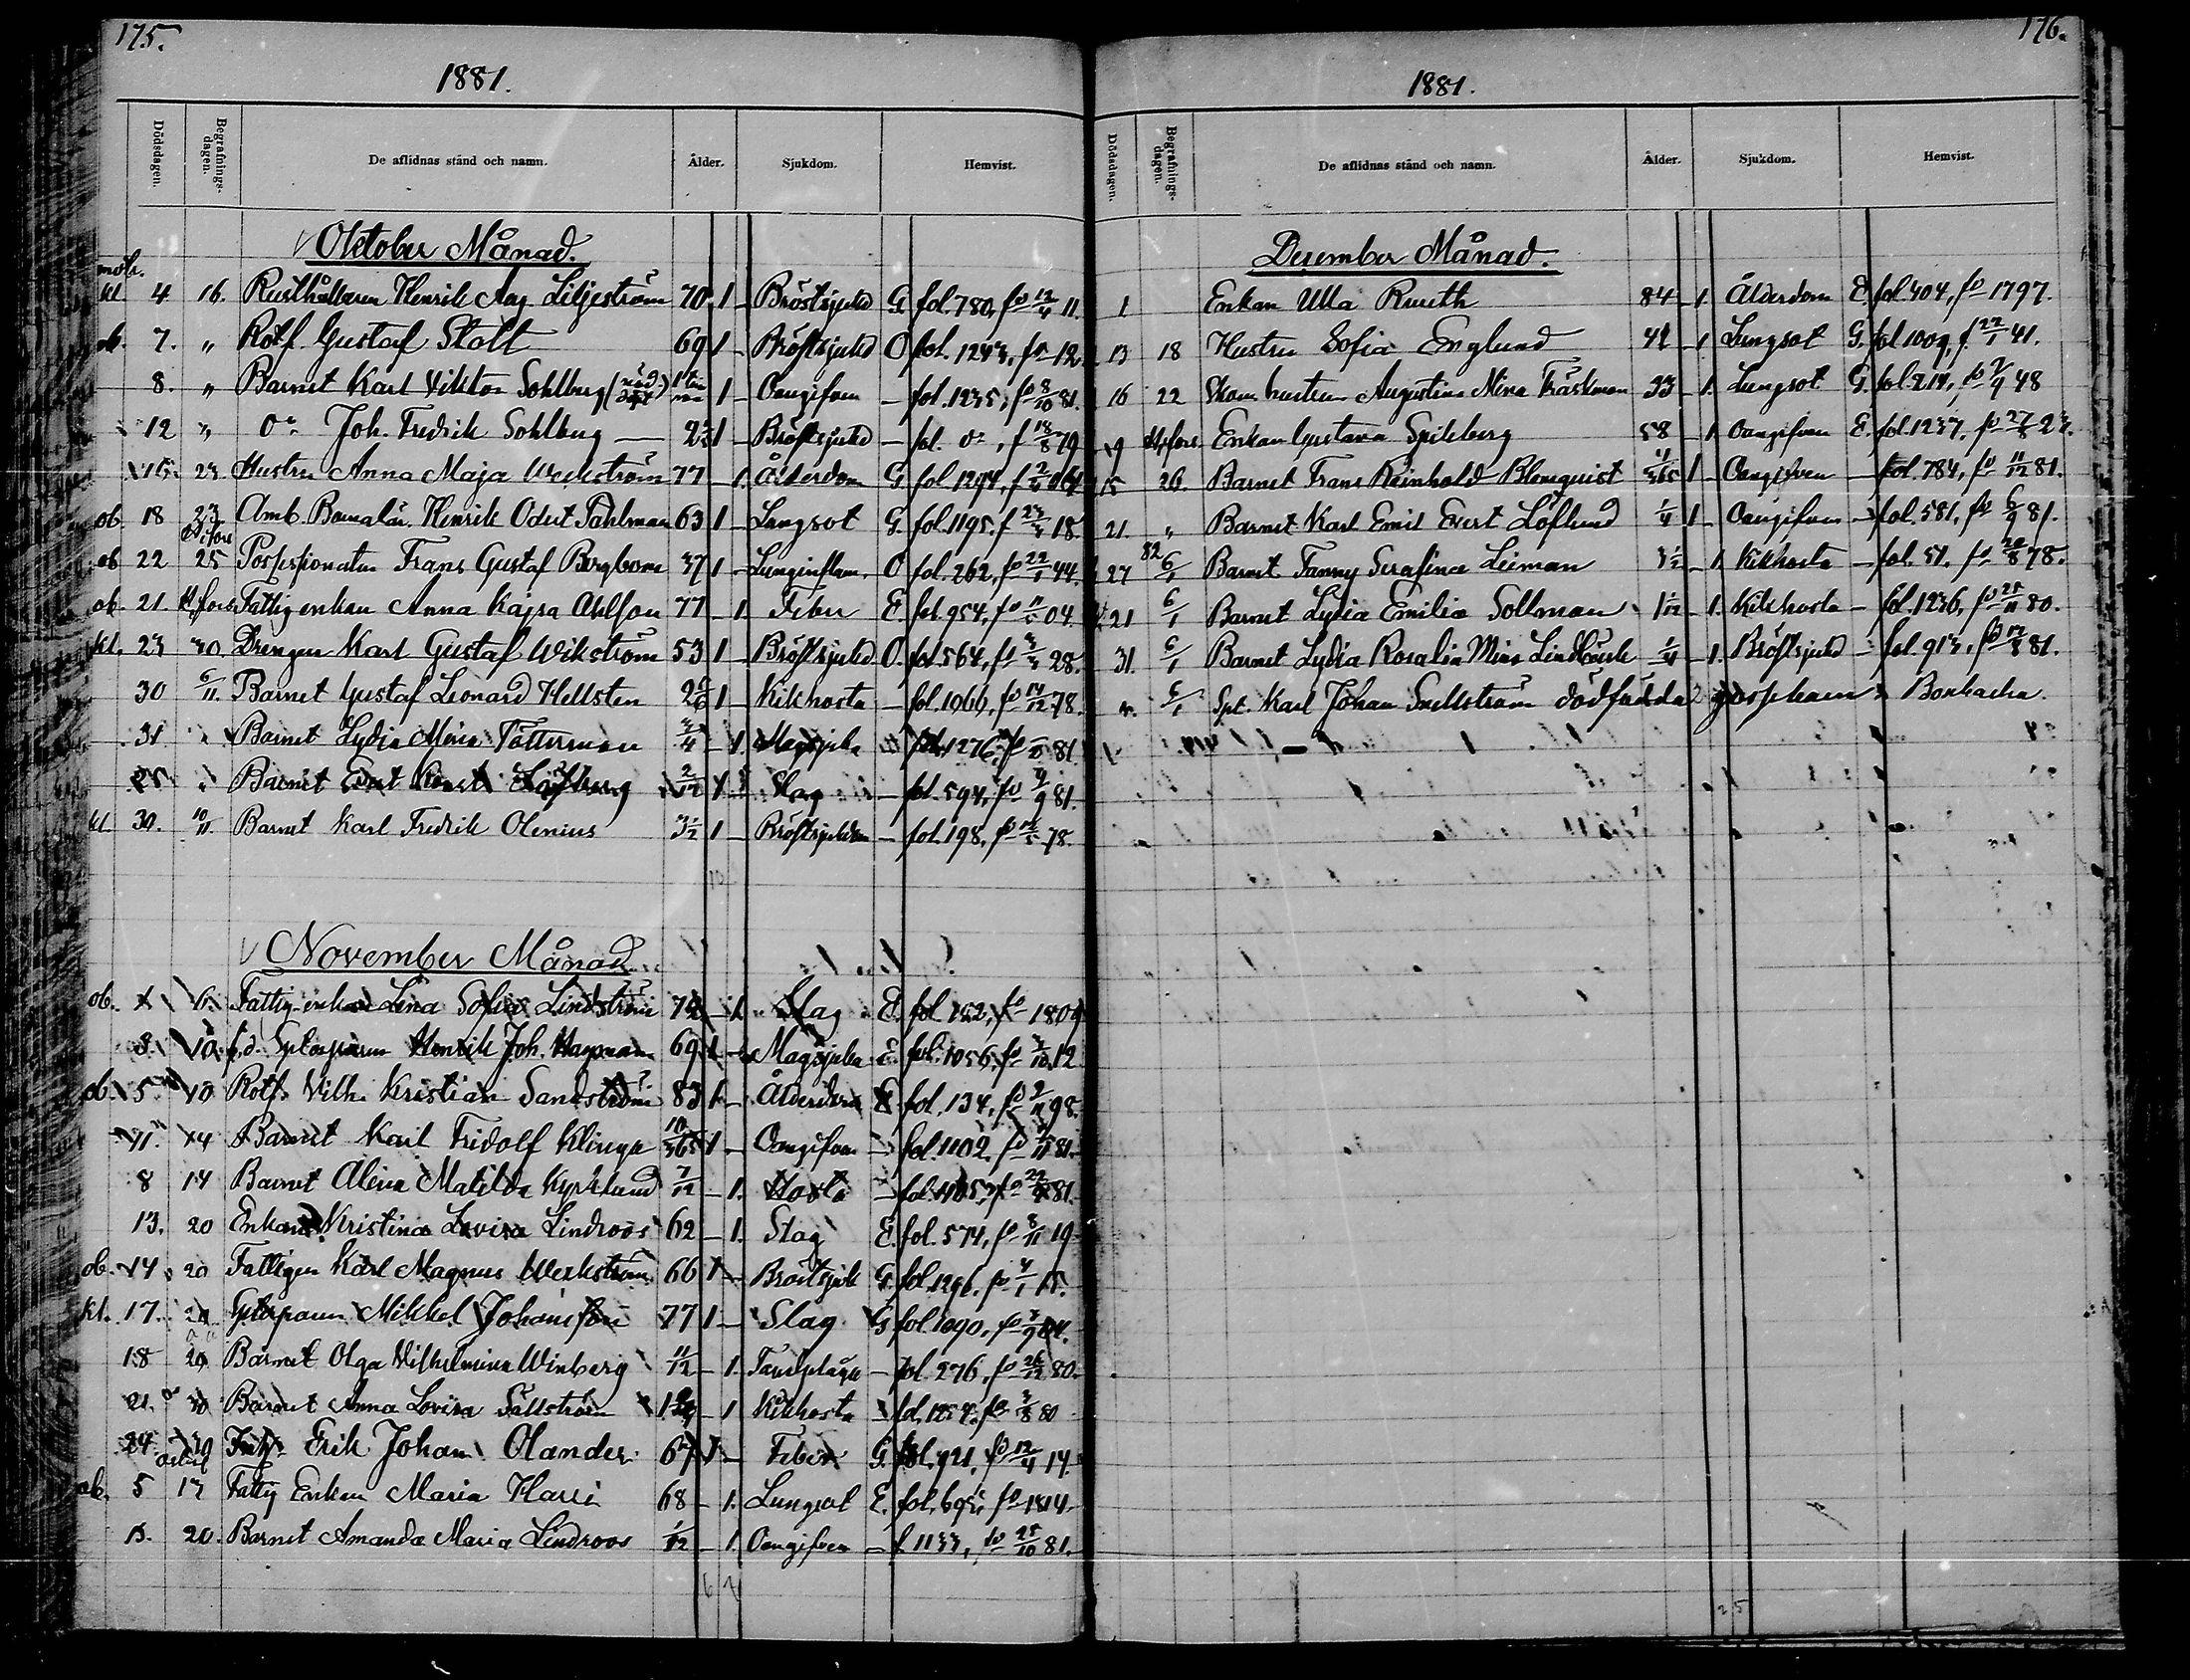 175.
1881.
Dödsdagen. Begrafnings-dagen. De aflidnas stånd och namn. Ålder. Sjukdom. Hemvist.
Oktober Månad.
kl 4 16. Rusthållaren Henrik Aug Liljeström 70 1 – Bröstsjukd G. fol. 780, f 12/4 11.
ob. 7. " Rotf. Gustaf Stolt 69 1 – Bröstsjukd O fol. 1243, 12
8. " Barnet Karl Viktor Sohlberg 1 – Oangifven – fol. 1235, f 8/10 81.
12 " Do Joh. Fredrik Sohlberg 1 – Bröstsjukd – fol. Do, f 18/8 79
23 Hustru Anna Maja Weckström 77 – 1. Ålderdom G fol. 1294, f
ob 18 23 Amb. Henrik Odert Tahlman 63 1 – Lungsot G. fol. 1195. f 23/3 18.
ob 22 25 Possessionaten Frans Gustaf Bergbom 37 1 – Lunginflam. O fol. 262, f 22/1 44.
ob. 21. H:fors Fattig enkan Anna Kajsa Ahlfon 77 – 1. Feber E. fol. 954, f 04.
kl. 23 30. Drengen Karl Gustaf Wikström 53 1 – Bröstsjukd O. fol 564, f 28.
30 6/11. Barnet Gustaf Leonard Hellsten 1 – Kikhosta – fol. 1066, f 14/12 78.
31 " Barnet Lydia Mina Tötterman 3/4 – 1. Magsjuka – fol. 1276, f 81
25 " Barnet 2/12 Slag – fol. 594, f 9 81.
kl. 30. 10/11. Barnet Karl Fredrik Olenius 3 1/2 1 – Bröstsjukdom – fol. 198, f 78.
November Månad
ob. 1 6. Fattig-enkan Lena Sofia Lindström 72 – 1. Slag E. fol. 152, f 1809
3. 10 f.d. Henrik Joh. Hagman 69 1 – Magsjuka E. fol. 1056, f 10 12
ob. 5 10 Rotf. Vilh. Kristian Sandström 83 1 – Ålderdom E. fol. 134, f 9/11 98.
11. 14 Barnet Karl Fridolf Klinga 10/365 1 – Oangifven – fol. 1102. f 1/11 81.
8 14 Barnet Alina Matilda Kyrklund 7/12 – 1. Hosta – fol. f 81.
13. 20 Enkan Kristina Lovisa Lindroos 62 – 1. Slag E. fol. 574, f 8/11 19
ob. 14 20 Fattigen Karl Magnus Weckström 66 1 – Bröstsjuk G. fol. 1296, f 4/1 15.
kl. 17. 20 Mikkel Johansson 77 1 – Slag G fol. 1090, f 3/9 04.
18 20 Barnet Olga Vilhelmina Winberg 11/12 – 1. Tandplåga – fol. 276, f 26/12 80.
21. 30 Barnet Anna Lovisa Sällström – 1 Kikhosta – fol. 1254. f 3/8 80
24. 30 Erik Johan Olander 67 1 – Feber G. fol. 921, f 12/4 14.
ob. 5 13 Fattig Enkan Maria Harri 68 – 1. Lungsot E. fol. 695, f 1814.
15. 20. Barnet Amanda Maria Lindroos 1/12 – 1. Oangifven – f. 1133, f 25/10 81.
176.
1881.
Dödsdagen. Begrafnings-dagen. De aflidnas stånd och namn. Ålder. Sjukdom. Hemvist.
December Månad.
1 Enkan Ulla Rmeth 84 – 1. Ålderdom E. fol. 404, f 1797.
13 18 Hustru Sofia Englund 41 – 1 Lungsot G. fol 1009, f. 22/1 41.
16 22 Augustina Mina Träskman 33 – 1. Lungsot G. fol. 214, f 7/9 48
9 H:fors Enkan Gustava Spikberg 58 – 1 Oangifven E. fol. 1237, f 27/8 23.
15 26. Barnet Frans Reinhold Blomquist 4/365 1 – Oangifven – fol. 784, f 11/12 81.
21. " Barnet Karl Emil Evert Löflund 1/4 1 – Oangifven – fol. 581, f 6/9 81.
82
27 6/1 Barnet Fanny Serafina Leiman 3 1/2 – 1. Kikhosta – fol. 51. f 20/8 78.
21 6/1 Barnet Lydia Emilia Soltman 1 1/12 – 1. Kikhosta – fol. 1236, f 25/11 80.
31. 6/1 Barnet Lydia Rosalin Mina 1/4 – 1. Bröstsjukd – fol. 913, f 12/8 81.
6/1 Spt. Karl Johan Snellström dödfödda gosseharn
25